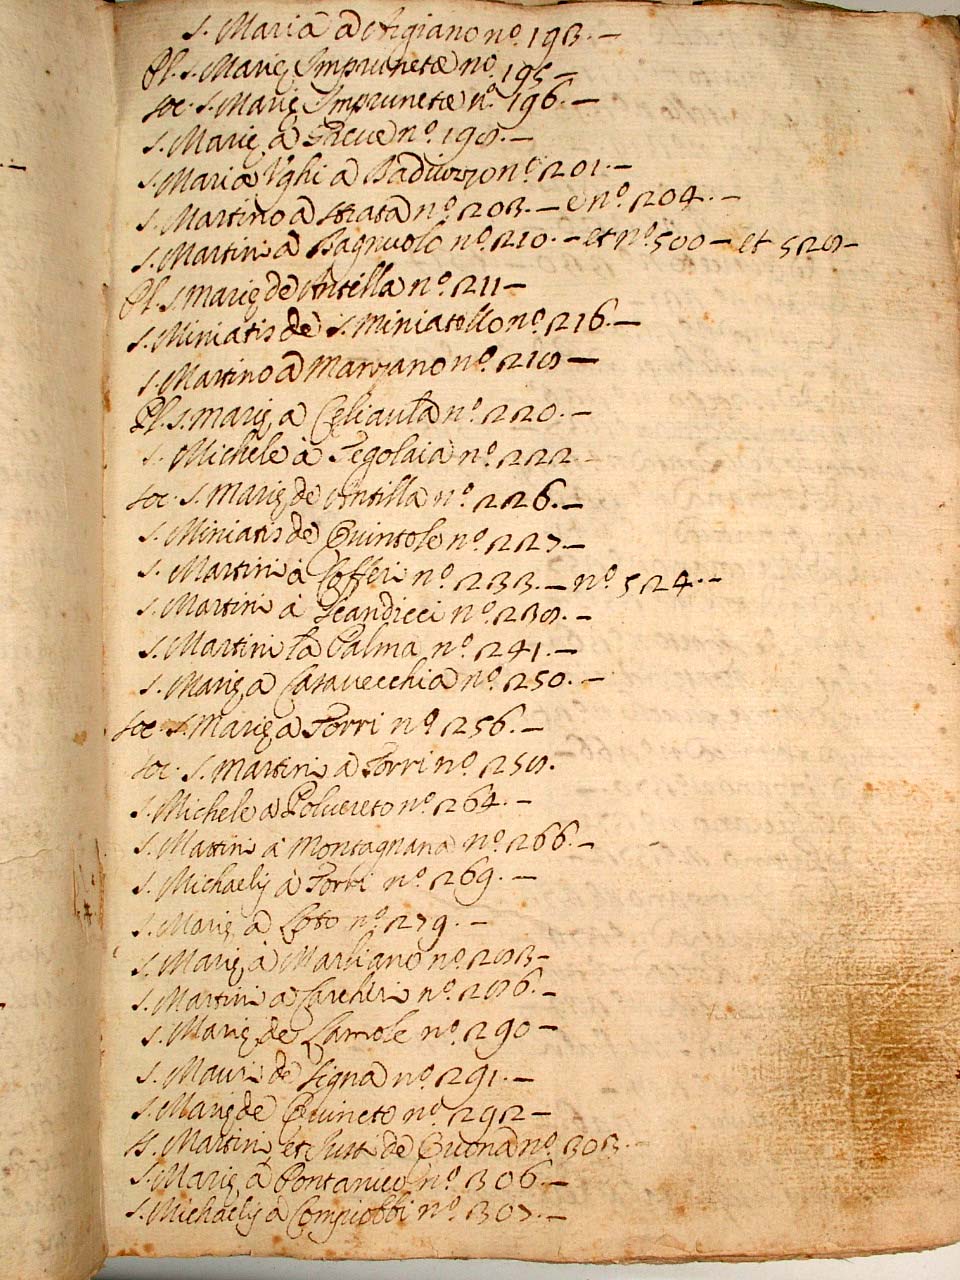 S. Maria à Argiano nº. 193. –
Pl. S. Marię Imprunetæ nº. 195 –
soc. S. Marię Imprunetæ nº. 196. –
S. Marię à nº. 198. –
S. Maria Ughi à nº. 201. –
S. Martino à Strada nº. 203. – e nº. 204. –
S. Martini à Bagnuolo nº. 210. – et nº. 500 – et 528 –
Pl. S. Marię de Antella nº. 211 –
S. Miniatis de S. Miniatello nº. 216. –
S. Martino à nº. 218 –
Pl. S. Marię à Celiaula nº. 220. –
S. Michele à Pegolaia nº. 222. –
soc. S. Marię de Antilla nº. 226. –
S. Miniatis de Quintole nº. 227. –
S. Martini à Cofferi nº. 233. – nº. 524. –
S. Martini à Scandicci nº. 238. –
S. Martini la Palma nº. 241. –
S. Marię à Casavecchia nº. 250. –
soc. S. Marię à Torri nº. 256. –
soc. S. Martini à Torri nº. 258.
S. Michele à Polvereto nº. 264. –
S. Martini à Montagnana nº. 266. –
S. Michaelis à Torri nº. 269. –
S. Marię à nº. 279. –
S. Marię à Marliano nº. 283 –
S. Martini à Carcheri nº. 286. –
S. Marię de Lamole nº. 290 –
S. Mauri de Signa nº. 291. –
S. Marię de Quineto nº. 292 –
SS. Martini et Justi de nº. 303. –
S. Marię à Pontanico nº. 306. –
S. Michaelis à Compiobbi nº. 307. –